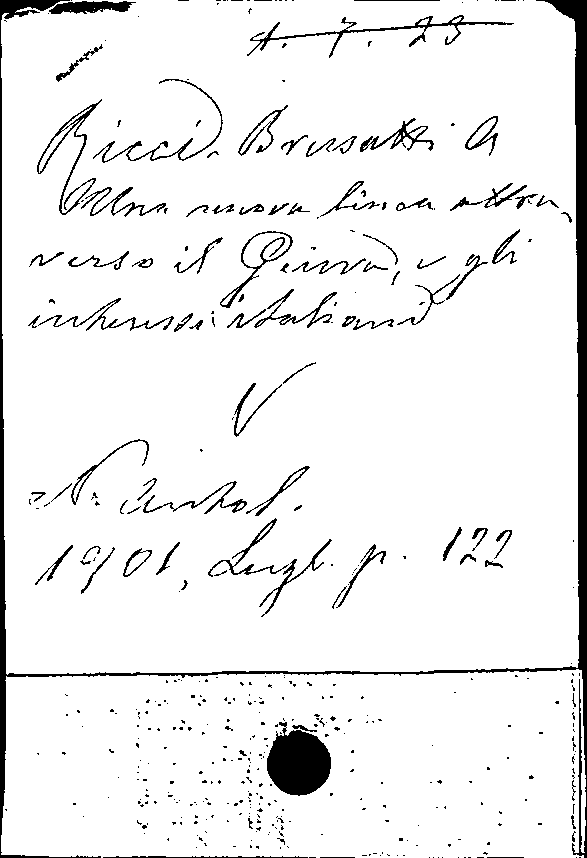 A. 7. 23
Ricci. Brusatti A
Una nuova linea attra-
verso il Giura, e gli
interessi italiani
V
N. Antol.
1901, Lugl. p. 122